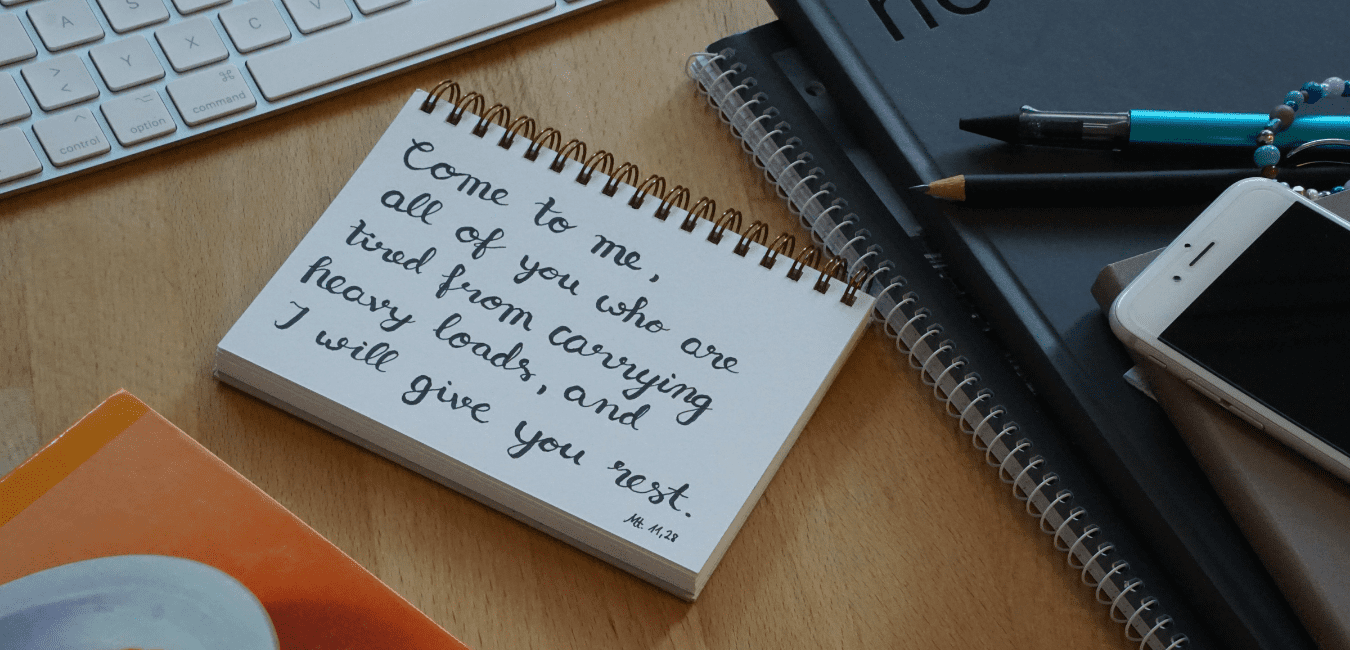 Come to me,
all of you who are
tired from carrying
heavy loads, and
I will give you rest.
Mt. 11,28
A
S
X
C
V
Y
>
<
⌘
command
⌥
option
^
control